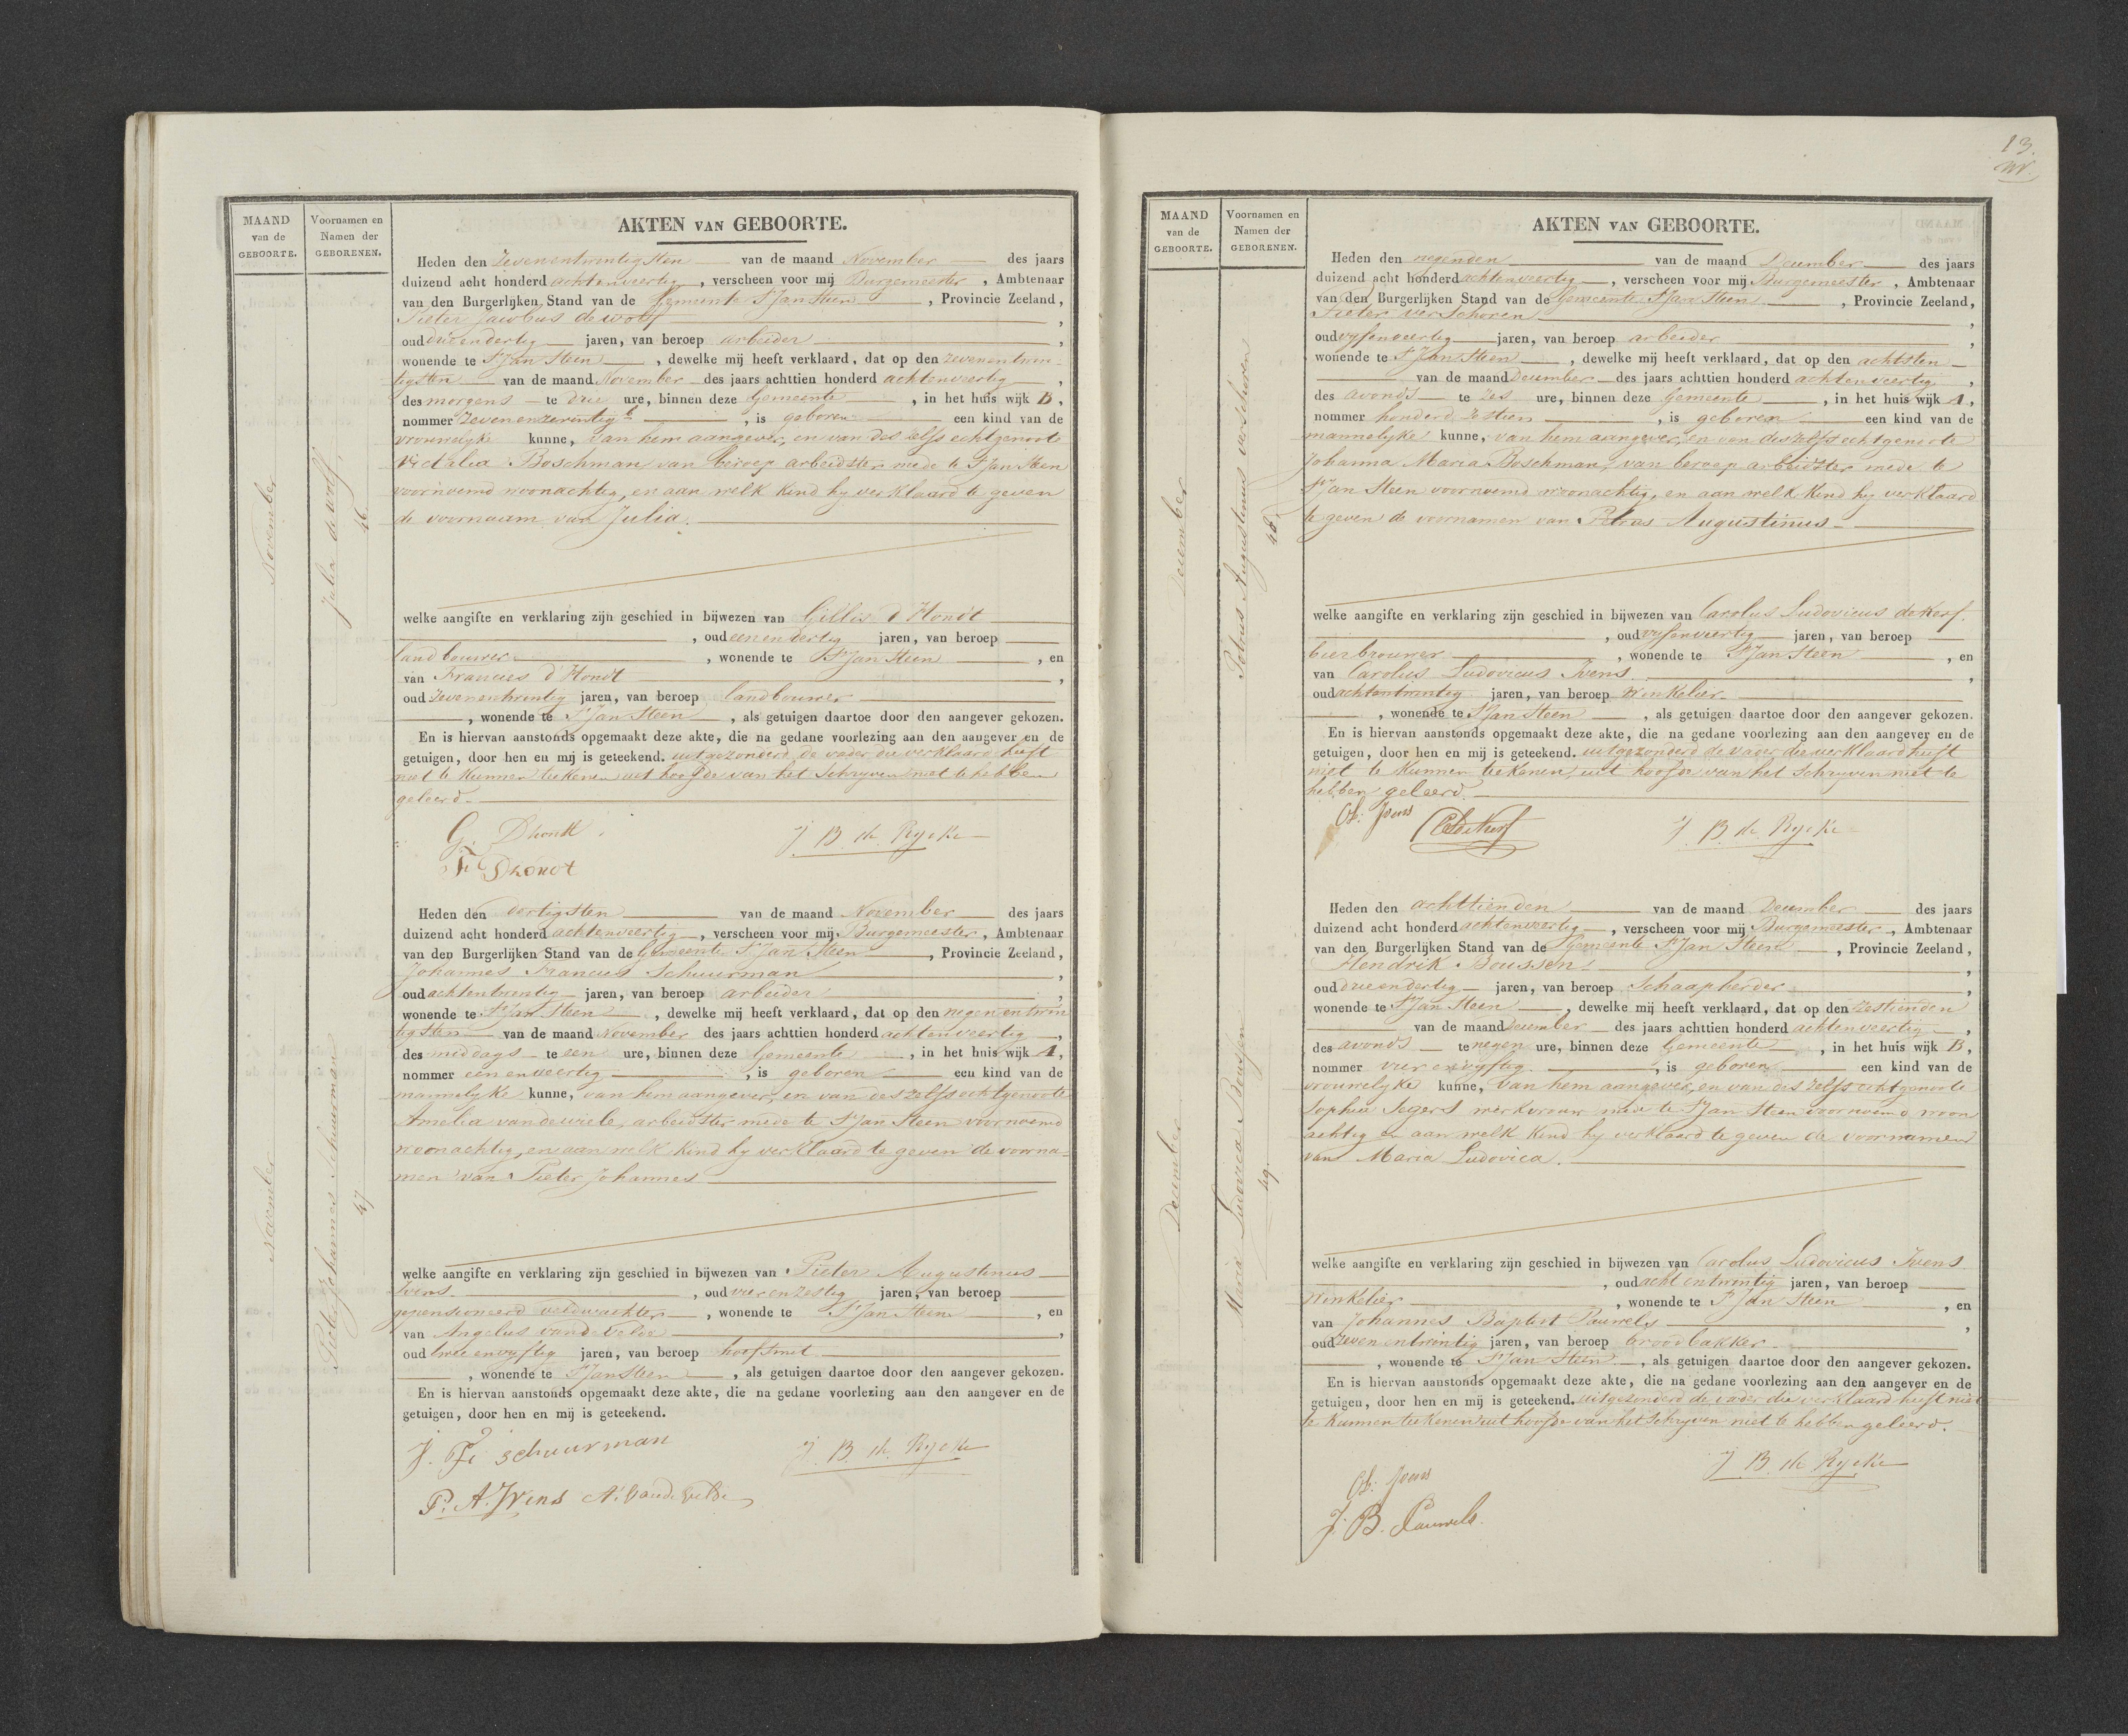 MAAND
van de
GEBOORTE.
Voornamen en
Namen der
GEBORENEN.
AKTEN VAN GEBOORTE.
November
Julia de wolf.
46
Heden den Zevenentwintigsten van de maand November des jaars
duizend acht honderd achtenveertig, verscheen voor mij Burgemeester, Ambtenaar
van den Burgerlijken Stand van de Gemeente St Jan Steen, Provincie Zeeland,
Pieter Jacobus de wolf,
oud drieendertig jaren, van beroep arbeider,
wonende te St Jan Steen, dewelke mij heeft verklaard, dat op den zevenentwin-
tigsten van de maand November des jaars achttien honderd achtenveertig,
des morgens te drie ure, binnen deze Gemeente, in het huis wijk B,
nommer zevenenzeventig b, is geboren een kind van de
vrouwelyke kunne, van hem aangever, en van des zelfs echtgenoote
Victalia Boschman van beroep arbeidster mede te St Jan Steen
voornoemd woonachtig, en aan welk kind hy verklaard te geven
de voornaam van Julia.
welke aangifte en verklaring zijn geschied in bijwezen van Gillis d'Hondt
, oud eenendertig jaren, van beroep
landbouwer, wonende te St Jan Steen, en
van Francies d'Hondt,
oud zevenentwintig jaren, van beroep landbouwer
, wonende te St Jan Steen, als getuigen daartoe door den aangever gekozen.
En is hiervan aanstonds opgemaakt deze akte, die na gedane voorlezing aan den aangever en de
getuigen, door hen en mij is geteekend. uitgezonderd de vader die verklaard heeft
niet te kunnen teekenen uit hoofde van het schryven niet te hebben
geleerd.
G. Dhondt
J. B. de Rycke
F. Dhondt
November
Pieter Johannes Schuurman
47
Heden den dertigsten van de maand November des jaars
duizend acht honderd achtenveertig, verscheen voor mij Burgemeester, Ambtenaar
van den Burgerlijken Stand van de Gemeente St Jan Steen, Provincie Zeeland,
Johannes Francies Schuurman,
oud achtentwintig jaren, van beroep arbeider,
wonende te St Jan Steen, dewelke mij heeft verklaard, dat op den negenentwin
tigsten van de maand November des jaars achttien honderd achtenveertig,
des middags te een ure, binnen deze Gemeente, in het huis wijk A,
nommer eenenveertig, is geboren een kind van de
mannelyke kunne, van hem aangever, en van des zelfs echtgenoote
Amelia van de wiele, arbeidster mede te St Jan Steen voornoemd
woonachtig, en aan welk kind hy verklaard te geven de voorna-
men van Pieter Johannes
welke aangifte en verklaring zijn geschied in bijwezen van Pieter Augustinus
Ivens, oud vierenzestig jaren, van beroep
gepensioneerd veldwachter, wonende te St Jan Steen, en
van Angelus van de Velde,
oud tweeenvyftig jaren, van beroep hoefsmit
, wonende te St Jan Steen, als getuigen daartoe door den aangever gekozen.
En is hiervan aanstonds opgemaakt deze akte, die na gedane voorlezing aan den aangever en de
getuigen, door hen en mij is geteekend.
J. F. schuurman
J. B. de Rycke
P. A. Ivens A. vande Velde
13.
MAAND
van de
GEBOORTE.
Voornamen en
Namen der
GEBORENEN.
AKTEN VAN GEBOORTE.
December
Petrus Augustinus verschoren
48.
Heden den negenden van de maand December des jaars
duizend acht honderd achtenveertig, verscheen voor mij Burgemeester, Ambtenaar
van den Burgerlijken Stand van de Gemeente St Jan Steen, Provincie Zeeland,
Pieter verschoren,
oud vyfenveertig jaren, van beroep arbeider,
wonende te St Jan Steen, dewelke mij heeft verklaard, dat op den achtsten
van de maand December des jaars achttien honderd achtenveertig,
des avonds te zes ure, binnen deze Gemeente, in het huis wijk A,
nommer honderd zestien, is geboren een kind van de
mannelyke kunne, van hem aangever, en van des zelfs echtgenoote
Johanna Maria Boschman, van beroep arbeidster mede te
St Jan Steen voornoemd woonachtig, en aan welk kind hy verklaard
te geven de voornamen van Petrus Augustinus
welke aangifte en verklaring zijn geschied in bijwezen van Carolus Ludovicus de Kerf.
, oud vyfenveertig jaren, van beroep
bierbrouwer, wonende te St Jan Steen, en
van Carolus Ludovicus Ivens,
oud achtentwintig jaren, van beroep winkelier
, wonende te St Jan Steen, als getuigen daartoe door den aangever gekozen.
En is hiervan aanstonds opgemaakt deze akte, die na gedane voorlezing aan den aangever en de
getuigen, door hen en mij is geteekend. uitgezonderd de vader die verklaard heeft
niet te kunnen teekenen, uit hoofde van het schryven niet te
hebben geleerd.
CL: Ivens
CL de Kerf
J. B. de Rycke
December
Maria Ludovica Boussen
49.
Heden den achttienden van de maand December des jaars
duizend acht honderd achtenveertig, verscheen voor mij Burgemeester, Ambtenaar
van den Burgerlijken Stand van de Gemeente St Jan Steen, Provincie Zeeland,
Hendrik Boussen,
oud drieendertig jaren, van beroep Schaapherder,
wonende te St Jan Steen, dewelke mij heeft verklaard, dat op den zestienden
van de maand December des jaars achttien honderd achtenveertig,
des avonds te negen ure, binnen deze Gemeente, in het huis wijk B,
nommer vierenvyftig, is geboren een kind van de
vrouwelyke kunne, van hem aangever, en van des zelfs echtgenoote
Sophia Segers werkvrouw mede te St Jan Steen voornoemd woon
achtig en aan welk kind hy verklaard te geven de voornamen
van Maria Ludovica.
welke aangifte en verklaring zijn geschied in bijwezen van Carolus Ludovicus Ivens
, oud achtentwintig jaren, van beroep
winkelier, wonende te St Jan Steen, en
van Johannes Baptist Pauwels,
oud zevenentwintig jaren, van beroep broodbakker
, wonende te St Jan Steen, als getuigen daartoe door den aangever gekozen.
En is hiervan aanstonds opgemaakt deze akte, die na gedane voorlezing aan den aangever en de
getuigen, door hen en mij is geteekend. uitgezonderd de vader die verklaard heeft niet
te kunnen teekenen uit hoofde van het schryven niet te hebben geleerd.
J. B. de Rycke
CL: Ivens
J. B. Pauwels.